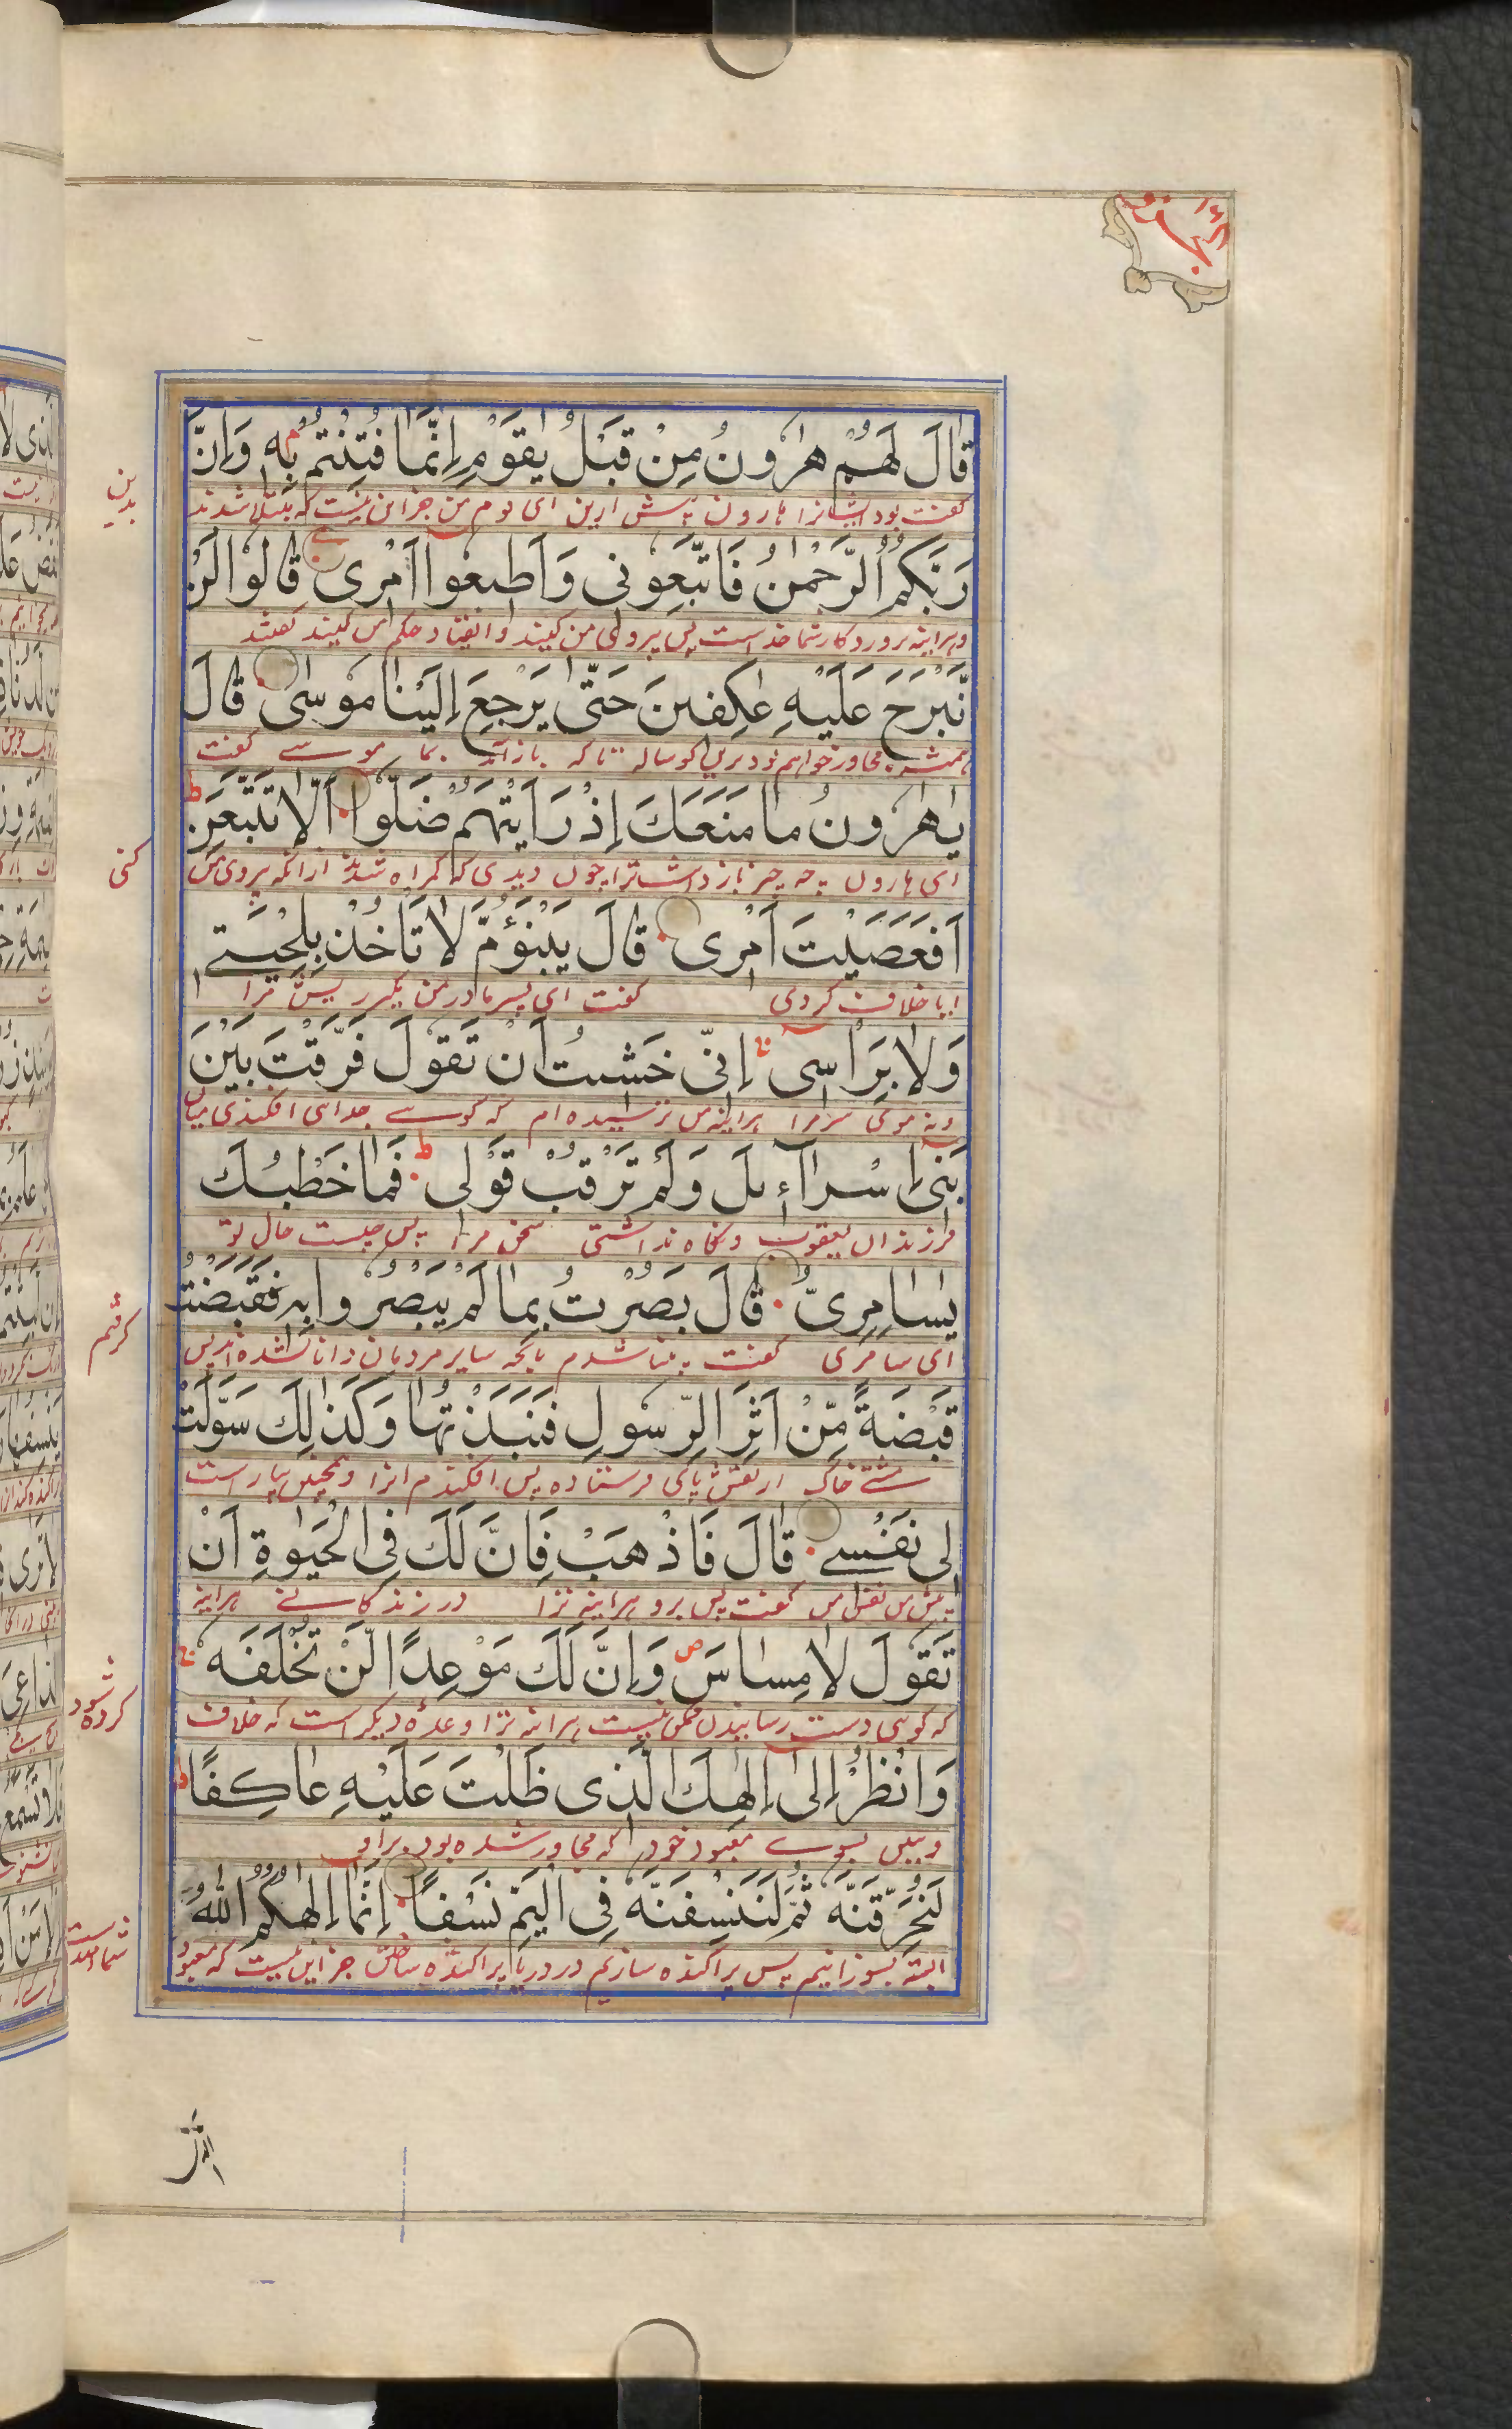 الجزو ١٦
قَالَ لَهُمْ هٰرُونُ مِنْ قَبْلُ يٰقَوْمِ اِنَّمَا فُتِنْتُمْ بِهٖ وَاِنَّ
گفت بود ایشانرا هارون پیش ازین ای قوم من جز این نیست که مبتلا شدند
بدین
رَبَّكُمُ الرَّحْمٰنُ فَاتَّبِعُوْنِى وَاَطِيعُوا اَمْرِى قَالُوا لَنْ
وهراینه پروردگار شما خداست پس پیروی من کنید و انقیاد حکم من کنید گفتند
نَّبْرَحَ عَلَيْهِ عٰكِفِينَ حَتّٰى يَرْجِعَ اِلَيْنَا مُوسٰى قَالَ
همیشه مجاور خواهیم بود برین گوساله تا که باز آید بما موسے گفت
يٰهٰرُونُ مَا مَنَعَكَ اِذْ رَاَيْتَهُمْ ضَلُّوا اَلَّا تَتَّبِعَنِ
ای هارون چه چیز باز داشت ترا چون دیدی که گمراه شدند از آنکه پیروی من
کنی
اَفَعَصَيْتَ اَمْرِى قَالَ يَبْنَؤُمَّ لَا تَاْخُذْ بِلِحْيَتِے
ایا خلاف کردی گفت ای پسر مادر من مگیر ریش مرا
وَلَا بِرَاْسِى اِنِّى خَشِيتُ اَنْ تَقُولَ فَرَّقْتَ بَيْنَ
ونه موی سر مرا هراینه من ترسیده ام که گوے جدائی افکندی میان
بَنِى اِسْرَآءِيلَ وَلَمْ تَرْقُبْ قَوْلِى فَمَا خَطْبُكَ
فرزندان یعقوب ونگاه نداشتی سخن مرا پس چیست حال تو
يٰسَامِرِىُّ قَالَ بَصُرْتُ بِمَا لَمْ يَبْصُرُوا بِهٖ فَقَبَضْتُ
ای سامری گفت بینا شدم بانچه سایر مردمان دانا نشده اند پس
گرفتم
قَبْضَةً مِّنْ اَثَرِ الرَّسُولِ فَنَبَذْتُهَا وَكَذٰلِكَ سَوَّلَتْ
مشتے خاک از نقش پای فرستاده پس افکندم انرا وهمچنین بیاراست
لِى نَفْسِے قَالَ فَاذْهَبْ فَاِنَّ لَكَ فِى الْحَيٰوةِ اَنْ
پیش من نفس من گفت پس برو هراینه ترا در زندگانے هراینه
تَقُولَ لَا مِسَاسَ وَاِنَّ لَكَ مَوْعِدًا لَّنْ تُخْلَفَهٗ
که گوی دست رسانیدن ممکن نیست هراینه ترا وعدۀ دیگر است که خلاف
کرده شود
وَانْظُرْ اِلٰى اِلٰهِكَ الَّذِى ظَلْتَ عَلَيْهِ عَاكِفًا
وببین بسوے معبود خود که مجاور شده بود براو
لَنُحَرِّقَنَّهٗ ثُمَّ لَنَنْسِفَنَّهٗ فِى الْيَمِّ نَسْفًا اِنَّمَا اِلٰهُكُمُ اللهُ
البته بسوزانیم پس پراکنده سازیم در دریا پراکنده ساختن جز این نیست که معبود